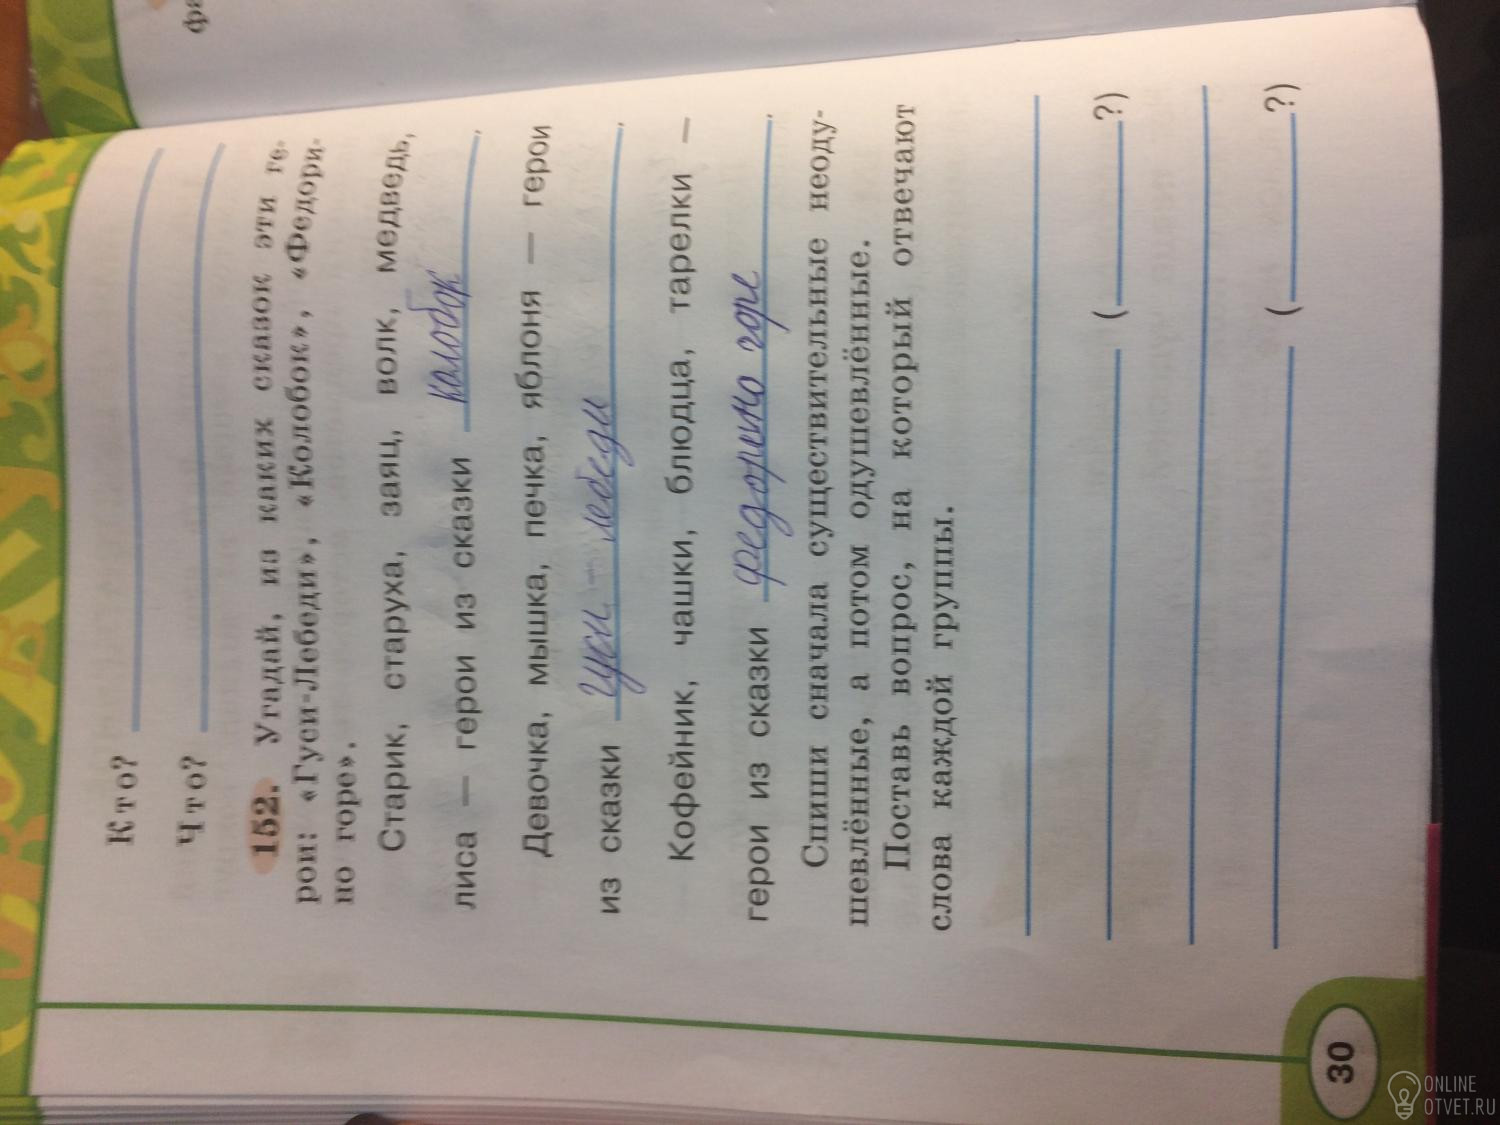 фа
Кто?
Что?
152. Угадай, из каких сказок эти ге-
рои: «Гуси-Лебеди», «Колобок», «Федори-
но горе».
Старик, старуха, заяц, волк, медведь,
лиса — герои из сказки колобок.
Девочка, мышка, печка, яблоня — герои
из сказки гуси - лебеди.
Кофейник, чашки, блюдца, тарелки —
герои из сказки федорино горе.
Спиши сначала существительные неоду-
шевлённые, а потом одушевлённые.
Поставь вопрос, на который отвечают
слова каждой группы.
( ?)
( ?)
30
ONLINE
OTVET.RU